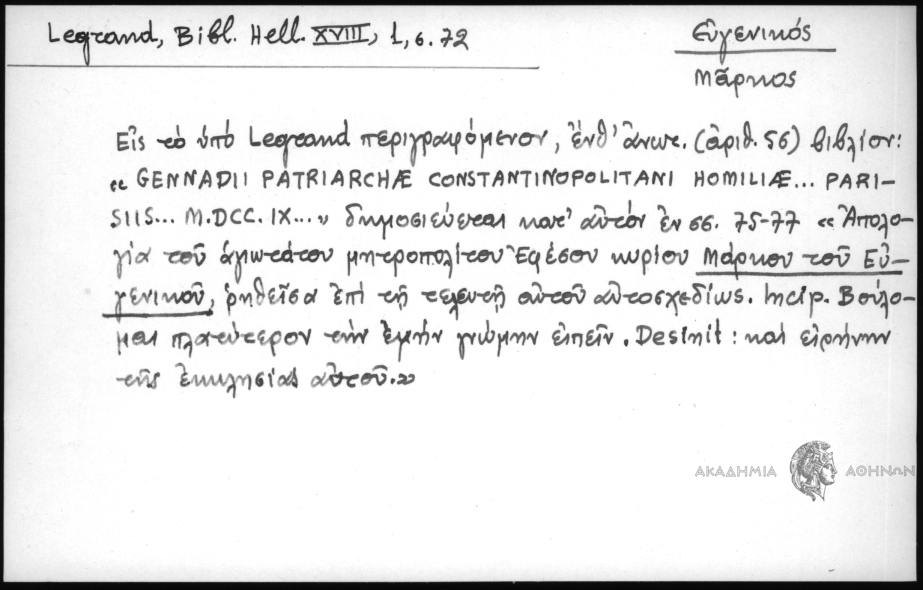 Legrand, Bibl. Hell. XVIII, 1, σ. 72
Εὐγενικός
Μᾶρκος
Εἰς τὸ ὑπὸ Legrand περιγραφόμενον, ἔνθ' ἄνωτ. (ἀριθ. 56) βιβλίον:
« GENNADII PATRIARCHÆ CONSTANTINOPOLITANI HOMILIÆ... PARI-
SIIS... M.DCC.IX...» δημοσιεύεται κατ' αὐτὸν ἐν σσ. 75-77 « Ἀπολο-
γία τοῦ ἁγιωτάτου μητροπολίτου Ἐφέσου κυρίου Μάρκου τοῦ Εὐ-
γενικοῦ, ῥηθεῖσα ἐπὶ τῇ τελευτῇ αὐτοῦ αὐτοσχεδίως. Incip. Βούλο-
μαι πλατύτερον τὴν ἐμὴν γνώμην εἰπεῖν. Desinit: καὶ εἰρήνην
τῆς ἐκκλησίας αὐτοῦ.»
ΑΚΑΔΗΜΙΑ ΑΘΗΝΩΝ